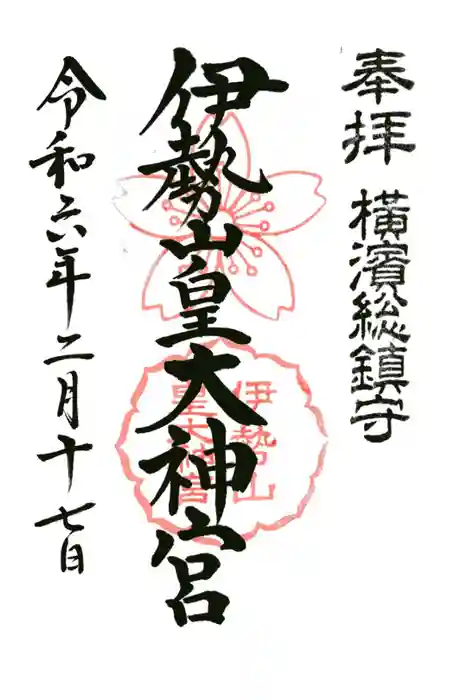 奉拝
横濱総鎮守
伊勢山皇大神宮
伊勢山
皇大神宮
令和六年二月十七日